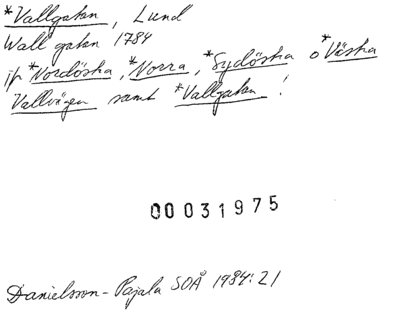 *Vallgatan, Lund
Wall gatan 1784
jfr *Nordöstra, *Norra, *Sydöstra o *Västra
Vallvägen samt *Vallgatan!
00031975
Danielsson-Pajala SOÅ 1984:21